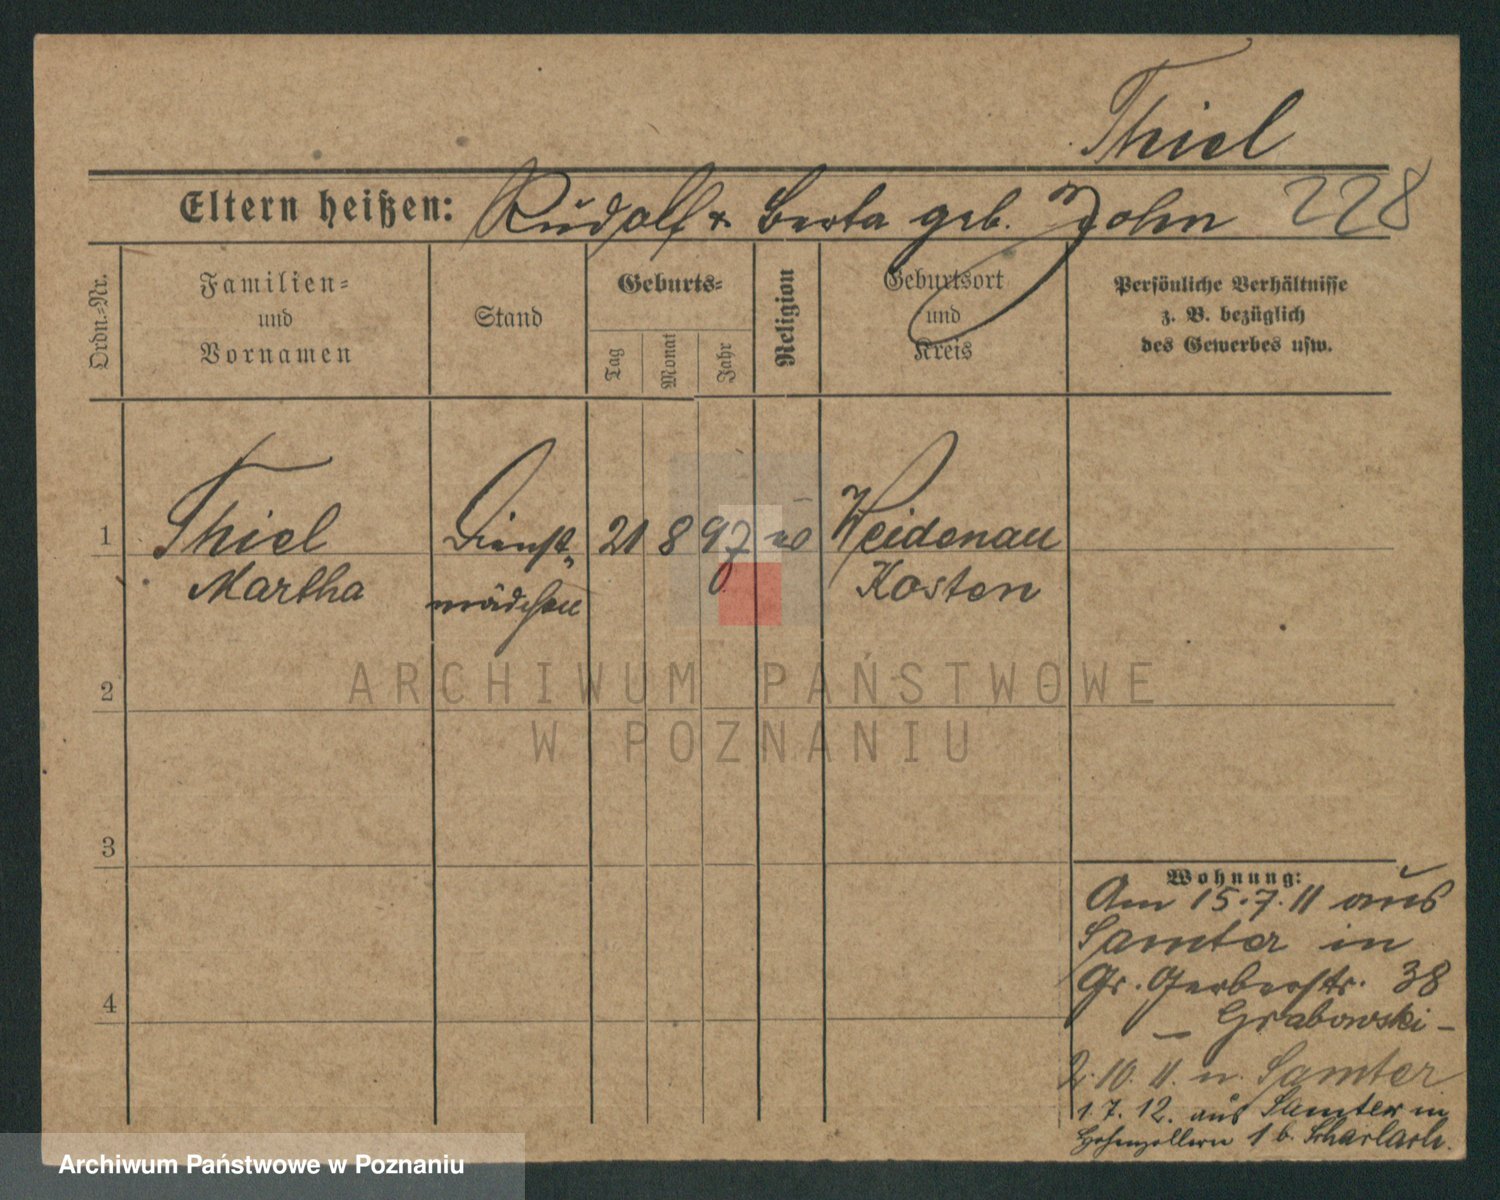 Thiel
Eltern heißen: Rudolf & Berta geb. John 228
Ordn.-Nr.
Familien=
und
Vornamen
Stand
Geburts=
Tag
Monat
Jahr
Religion
Geburtsort
und
Kreis
Persönliche Verhältnisse
z. B. bezüglich
des Gewerbes usw.
1 Thiel Dienst= 21 8 97 ev Weidenau
Martha mädchen Kosten
2
3
4
ARCHIWUM PAŃSTWOWE
W POZNANIU
Wohnung:
Am 15.7.11 aus
Samter in
Gr. Gerberstr. 38
– Grabowski –
2.10.11. n. Samter
1.7.12. aus Samter in
Hohenzollern 1 b. Scharlach.
Archiwum Państwowe w Poznaniu